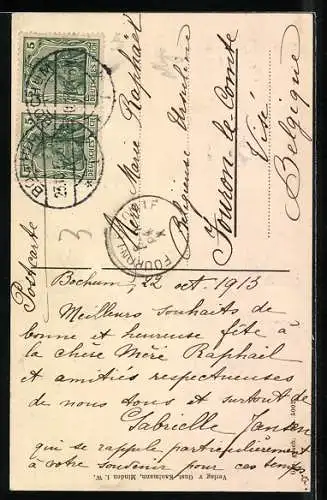 Postcarte
Mère Marie Raphaël
Religieuse Ursuline
Fouron-le-Comte
Visé
Belgique
5
BOCHUM
3
Bochum, 22 oct. 1913
Meilleurs souhaits de
bonne et heureuse fête à
la chère Mère Raphaël
et amitiés respectueuses
de nous tous et surtout de
Gabrielle Jansen
qui se rappelle particulièrement
à votre souvenir pour ces temps
Verlag v. Gust. Kaufmann, Minden i. W.